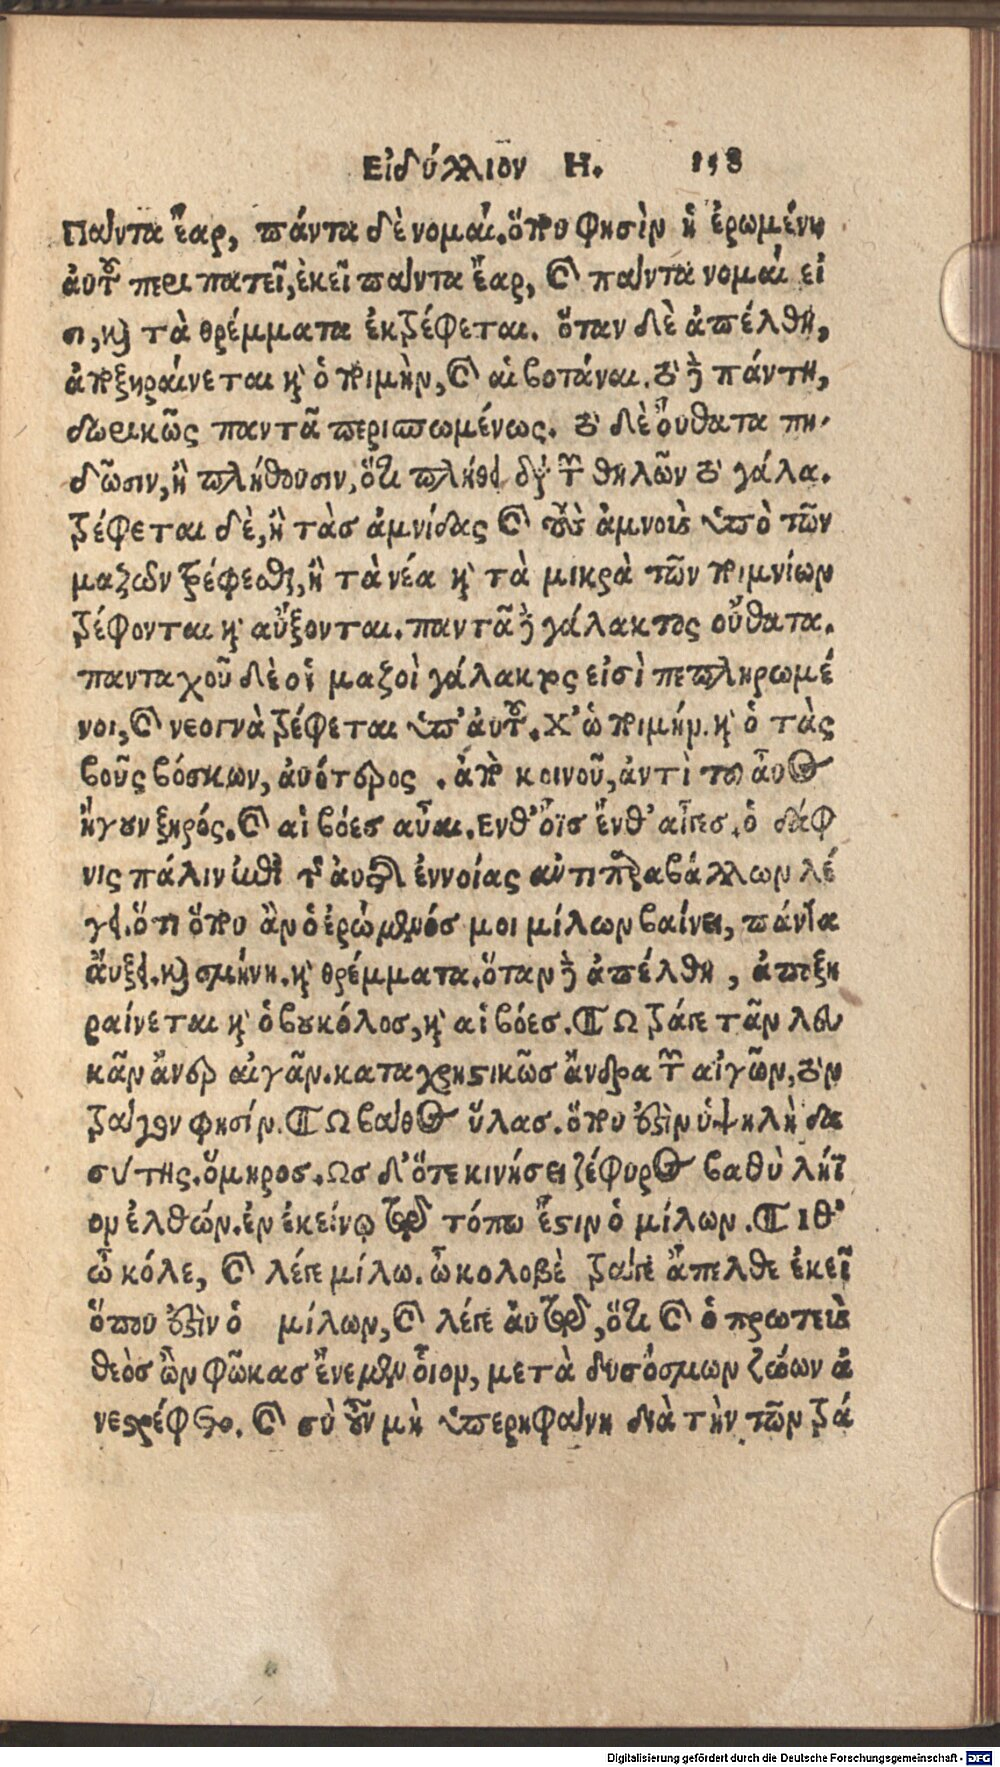 Εἰδύλλιον Η. 158
Πάντα ἔαρ, πάντα δὲ νομαί. ὅπου φησὶν ἡ ἐρωμένη
αὐτοῦ περιπατεῖ, ἐκεῖ πάντα ἔαρ, καὶ πάντα νομαὶ εἰ
σι, καὶ τὰ θρέμματα ἐκτρέφεται. ὅταν δὲ ἀπέλθῃ,
ἀποξηραίνεται καὶ ὁ ποιμὴν, καὶ αἱ βοτάναι. τὸ δὲ πάντη,
δωρικῶς παντᾶ περισπωμένως. τὸ δὲ οὔθατα πη-
δῶσιν, ἢ πλήθουσιν, ὅτι πλήθει διὰ τῶν θηλῶν τὸ γάλα.
τρέφεται δὲ, ἢ τὰσ ἀμνίδας καὶ τοὺς ἀμνοὺς ὑπὸ τῶν
μαζῶν τρέφεσθαι, ἢ τὰ νέα καὶ τὰ μικρὰ τῶν ποιμνίων
τρέφονται καὶ αὔξονται. παντᾶ δὲ γάλακτος οὔθατα.
πανταχοῦ δὲ οἱ μαζοὶ γάλακτος εἰσὶ πεπληρωμέ
νοι, καὶ νεογνὰ τρέφεται ὑπ' αὐτοῦ. Χ' ὠ ποιμήν. καὶ ὁ τὰς
βοῦς βόσκων, αὐότερος . ἀπὸ κοινοῦ, ἀντὶ τοῦ αὖος
ἤγουν ξηρός. καὶ αἱ βόεσ αὖαι. Ενθ' ὄϊσ ἔνθ' αἶγεσ. ὁ δάφ
νις πάλιν ἐπὶ τῆς αὐτῆς ἐννοίας ἀντιπαραβάλλων λέ
γει. ὅτι ὅπου ἂν ὁ ἐρώμενός μοι μίλων βαίνει, πάντα
αὔξει. καὶ σμήνη. καὶ θρέμματα. ὅταν δὲ ἀπέλθη, ἀποξη
ραίνεται καὶ ὁ βουκόλοσ, καὶ αἱ βόεσ. ¶ Ω τράγε τᾶν λευ
κᾶν ἄνερ αἰγᾶν. καταχρηστικῶσ ἄνδρα τῶν αἰγῶν, τὸν
τράγον φησίν. ¶ Ω βάθος ὕλασ. ὅπου ἐστὶν ὑψηλὴ δα
σύτης. ὅμηροσ. Ωσ δ' ὅτε κινήσει ζέφυρος βαθὺ λήϊ
ον ἐλθών. ἐν ἐκείνῳ τῷ τόπω ἔστιν ὁ μίλων. ¶ Ιθ'
ὦ κόλε, καὶ λέγε μίλω. ὦ κολοβὲ τράγε ἄπελθε ἐκεῖ
ὅπου ἐστὶν ὁ μίλων, καὶ λέγε αὐτῷ, ὅτι καὶ ὁ πρωτεὺς
θεὸσ ὢν φώκασ ἔνεμεν οἷον, μετὰ δυσόσμων ζώων ἀ
νεστρέφετο. καὶ σὺ οὖν μὴ ὑπερηφαίνη διὰ τὴν τῶν τρά
Digitalisierung gefördert durch die Deutsche Forschungsgemeinschaft - DFG